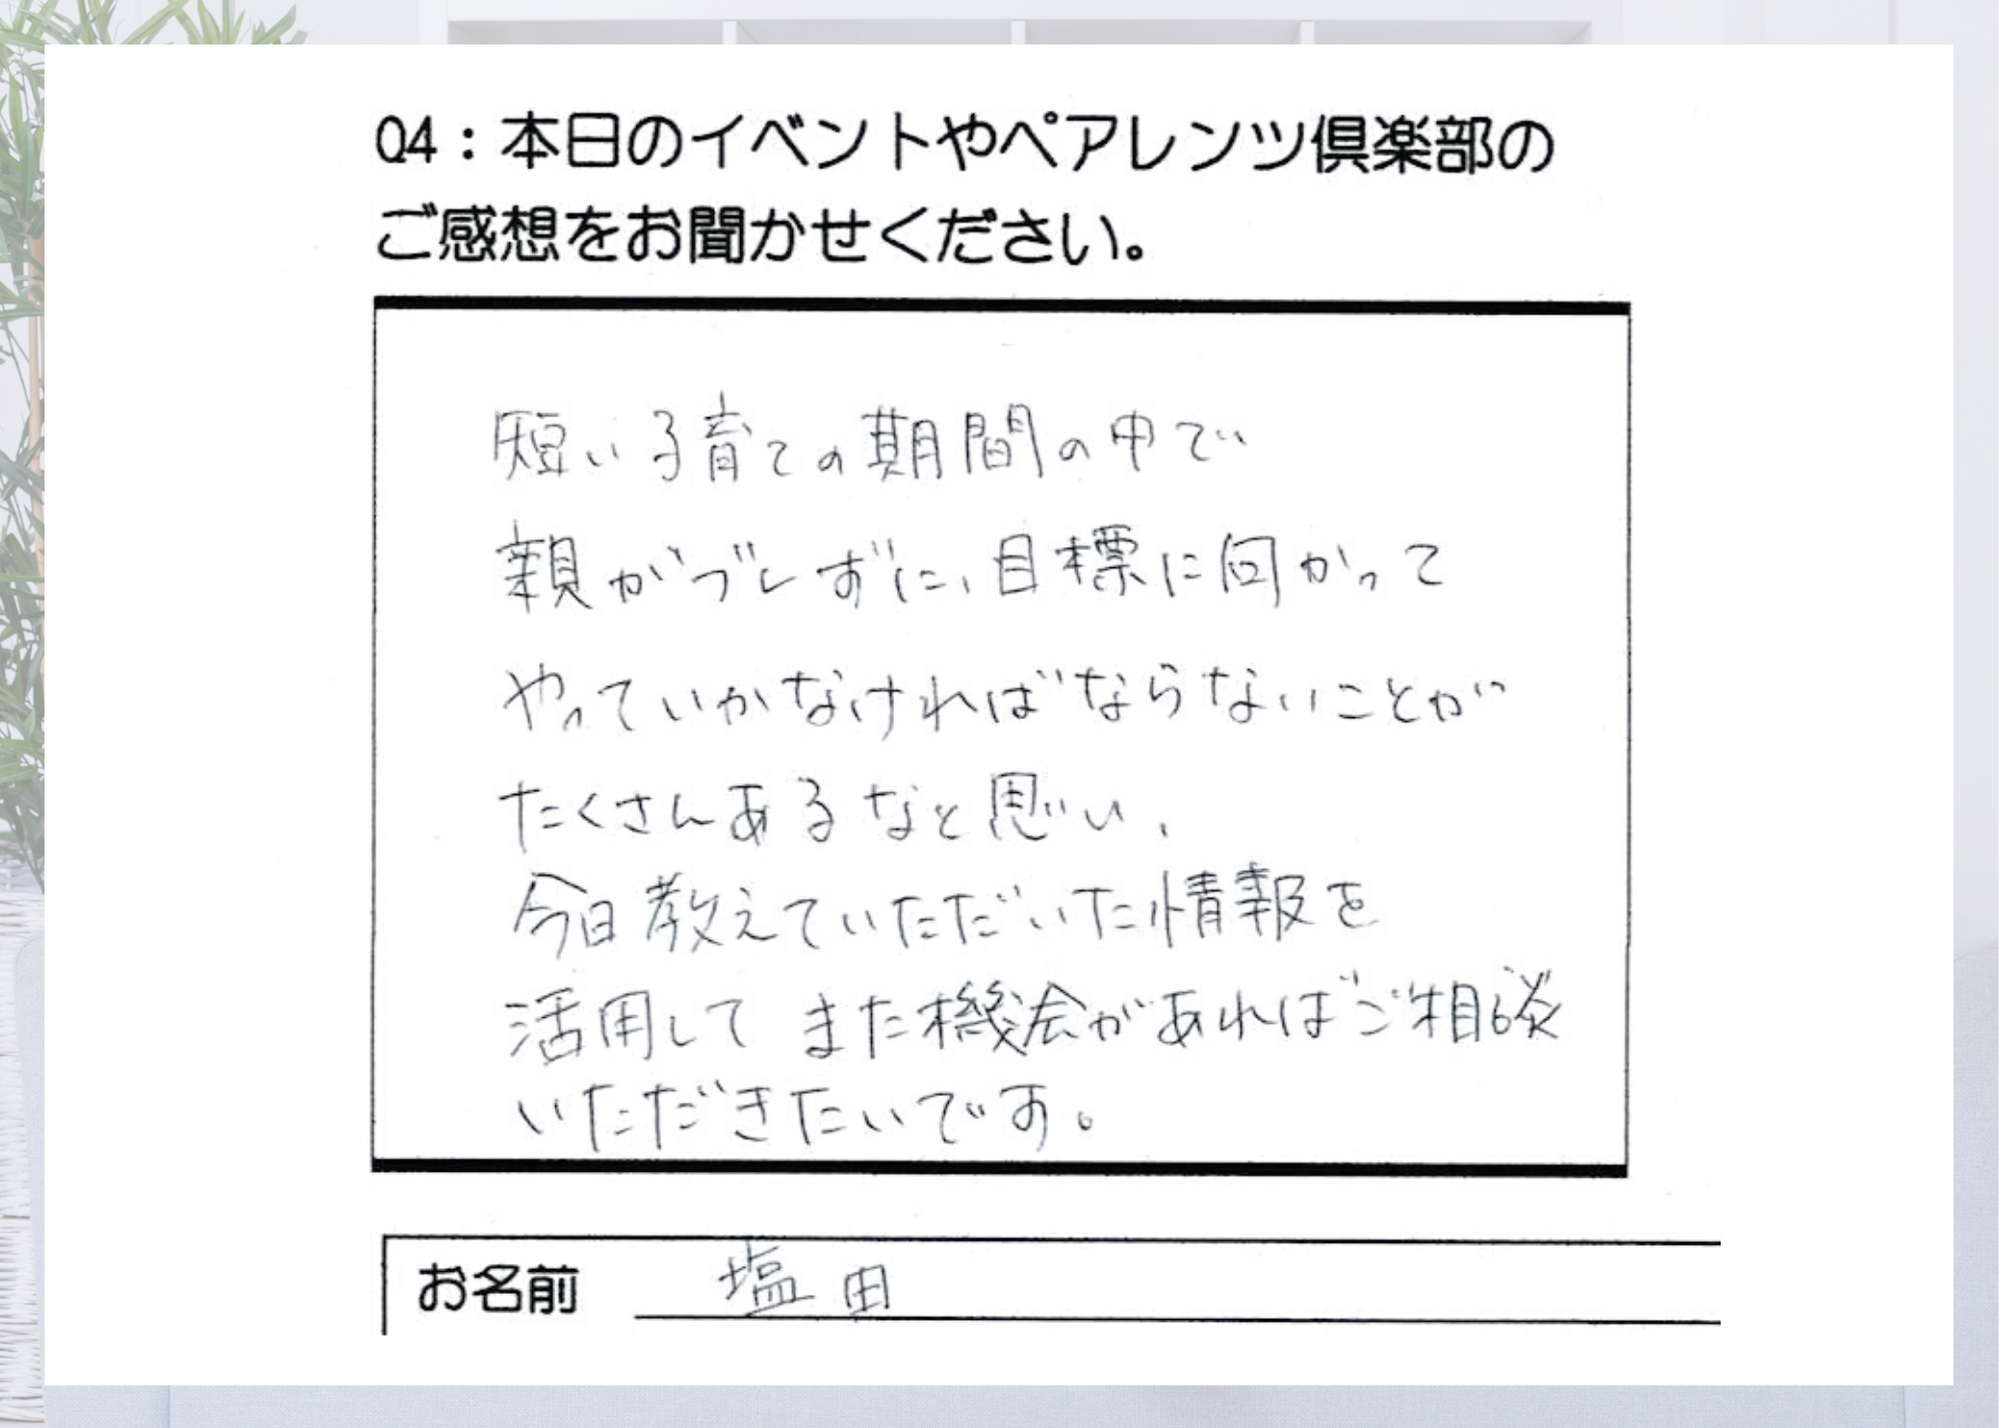 Q4：本日のイベントやペアレンツ倶楽部の
ご感想をお聞かせください。
短い子育ての期間の中で
親がブレずに、目標に向かって
やっていかなければならないことが
たくさんあるなと思い、
今日教えていただいた情報を
活用して また機会があればご相談
いただきたいです。
お名前 塩田